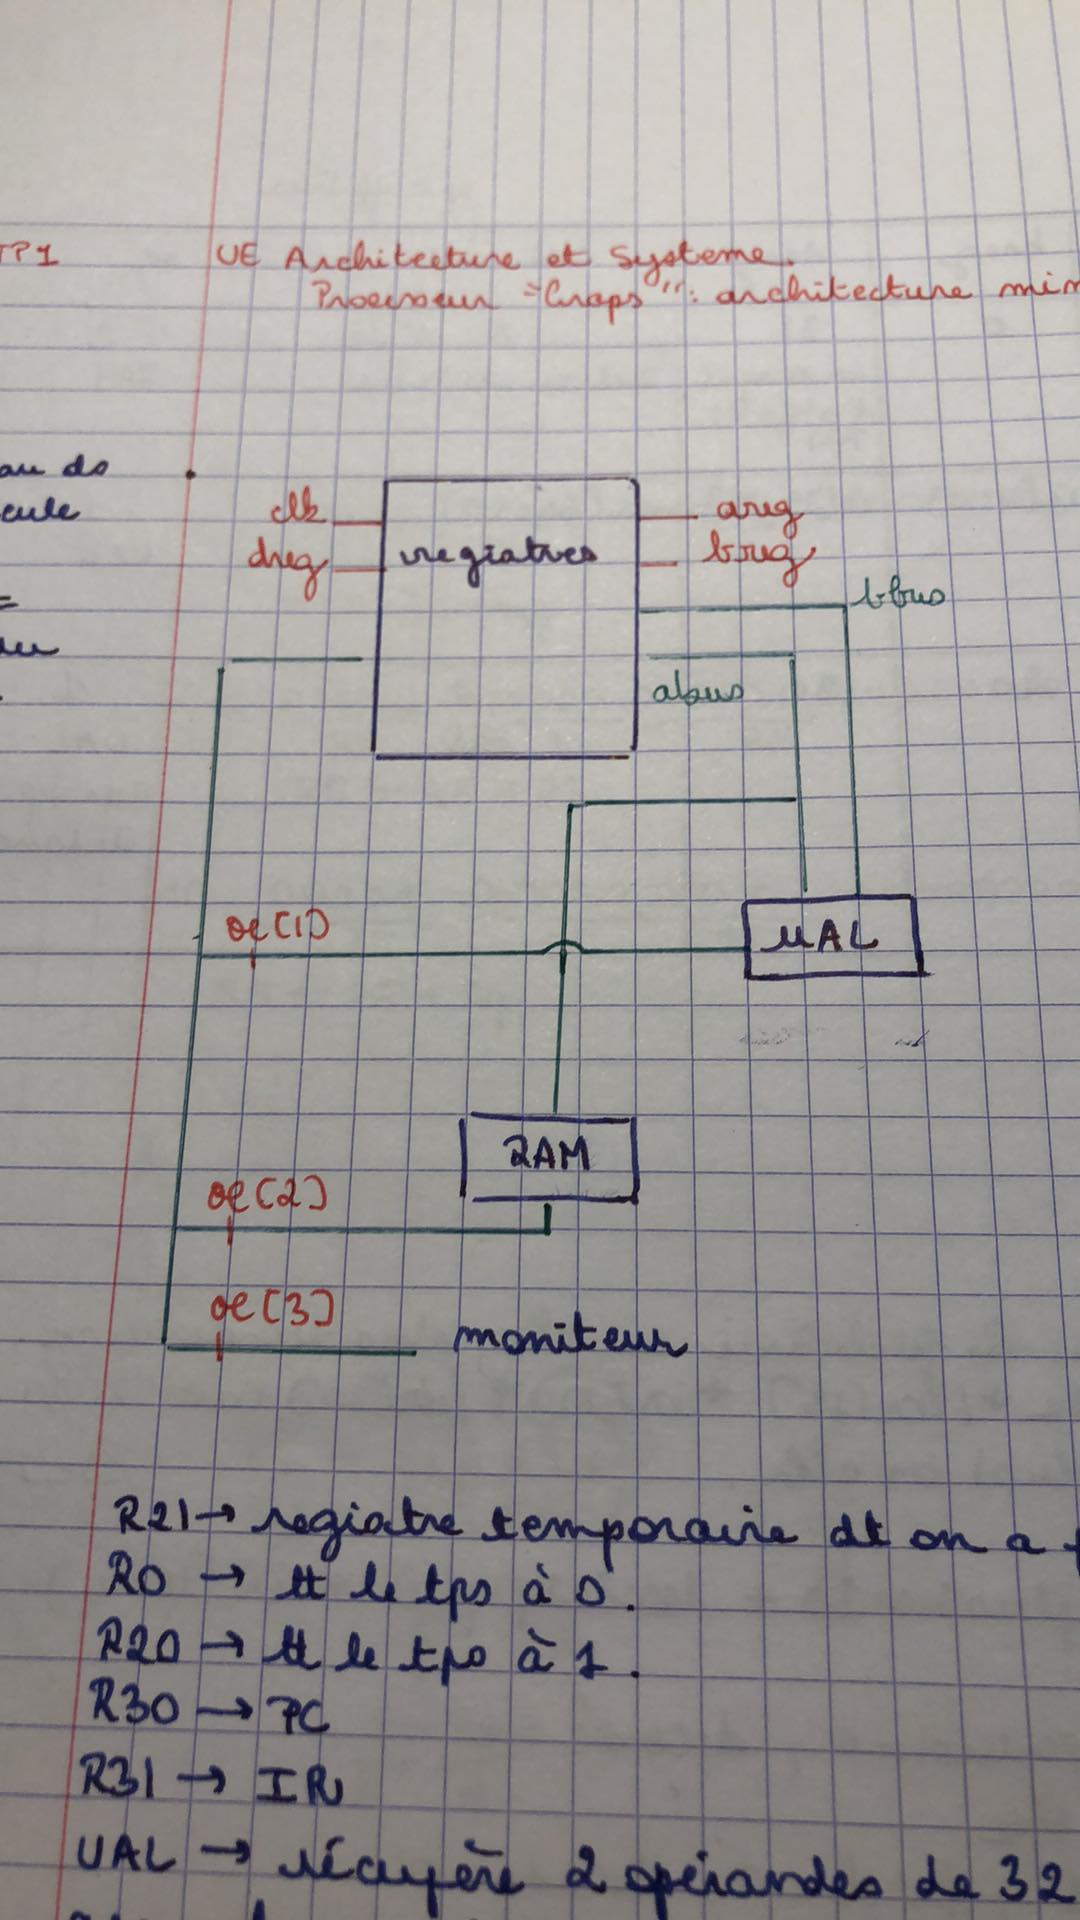 TP1 UE Architecture et Système.
Processeur "Craps": architecture
au do
cule
=
clk
dreg
registres
areg
breg
bbus
abus
oe(1)
UAL
RAM
oe(2)
oe(3)
moniteur
R21 → registre temporaire dt on a
R0 → tt le tps à 0.
R20 → tt le tps à 1.
R30 → PC
R31 → IR
UAL → récupère 2 opérandes de 32